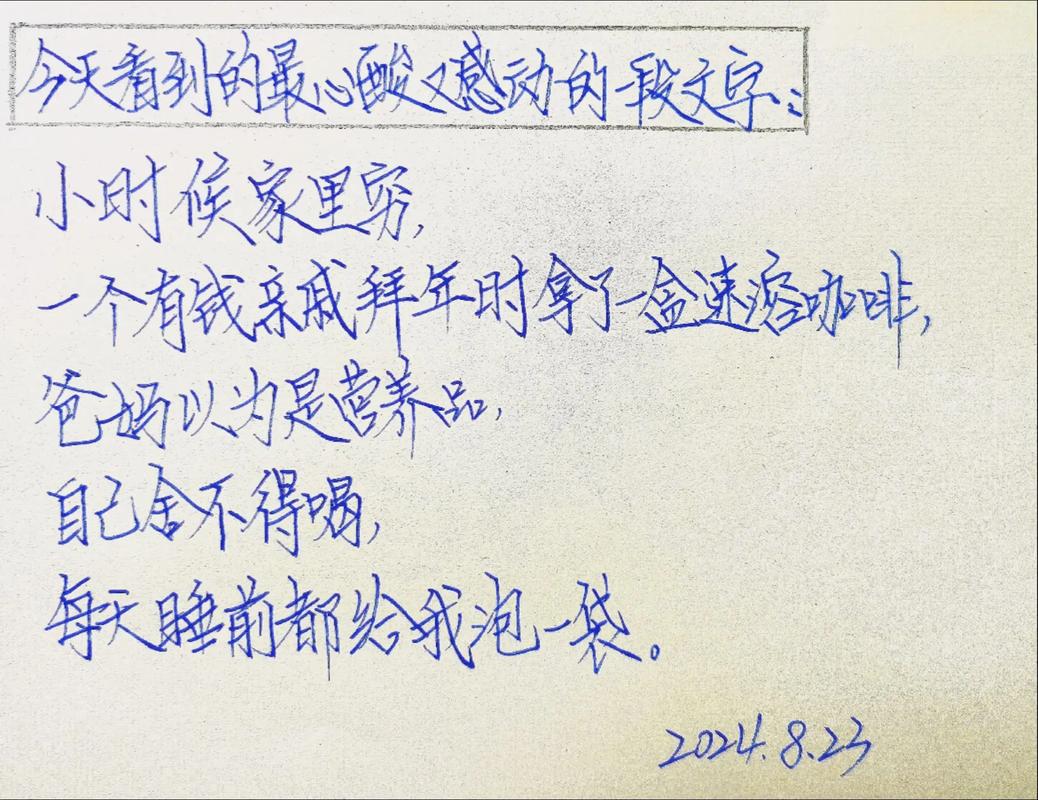 今天看到的最心酸又感动的一段文字：
小时候家里穷，
一个有钱亲戚拜年时拿了一盒速溶咖啡，
爸妈以为是营养品，
自己舍不得喝，
每天睡前都给我泡一袋。
2024.8.23